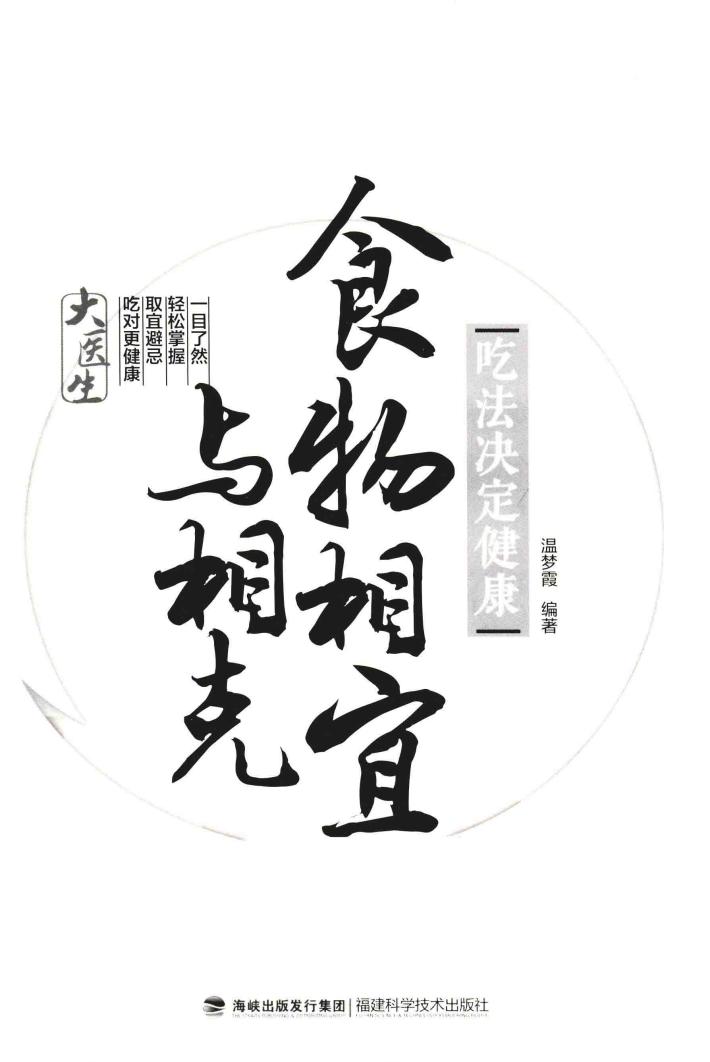 吃法决定健康
温梦霞 编著
食物相宜
与相克
一目了然
轻松掌握
取宜避忌
吃对更健康
大医生
海峡出版发行集团 | 福建科学技术出版社